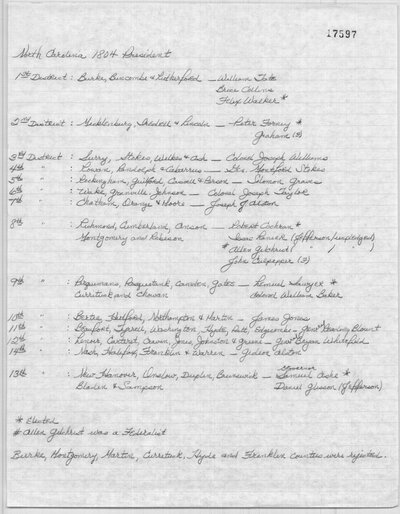 17597
North Carolina 1804 President
1st District : Burke, Buncombe & Rutherford — William Tate
Brice Collins
Felix Walker *
2nd District : Mecklenburg, Iredell & Lincoln — Peter Forney *
Graham (?)
3rd District : Surry, Stokes, Wilkes & Ashe — Colonel Joseph Williams
4th " : Rowan, Randolph & Cabarrus — Gen. Montford Stokes
5th " : Rockingham, Guilford, Caswell & Person — Solomon Graves
6th " : Wake, Granville, Johnson — Colonel Joseph Taylor
7th " : Chatham, Orange & Moore — Joseph Alston
8th " : Richmond, Cumberland, Anson — Robert Cochran *
Montgomery and Robeson Isaac Lanier (Jefferson/unpledged)
# Allen Gilchrist ( " / " )
John Culpepper (?)
9th " : Perquimans, Pasquotank, Camden, Gates — Lemuel Sawyer *
Currituck and Chowan Colonel William Baker
10th " : Bertie, Hertford, Northampton & Martin — James Jones
11th " : Beaufort, Tyrrell, Washington, Hyde, Pitt, Edgecombe — Gen. Reading Blount
12th " : Lenoir, Carteret, Craven, Jones, Johnston & Greene — Genl Bryan Whitefield
14th " : Nash, Halifax, Franklin & Warren — Gideon Alston
13th " : New Hanover, Onslow, Duplin, Brunswick — Governor Samuel Ashe *
Bladen & Sampson Daniel Glisson (Jefferson)
* Elected
# Allen Gilchrist was a Federalist
Burke, Montgomery, Martin, Currituck, Hyde and Franklin counties were rejected.